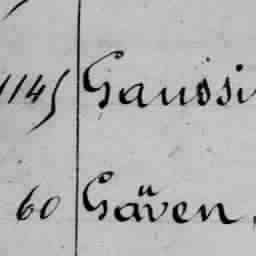 1145 Gaussi
60 Gäven